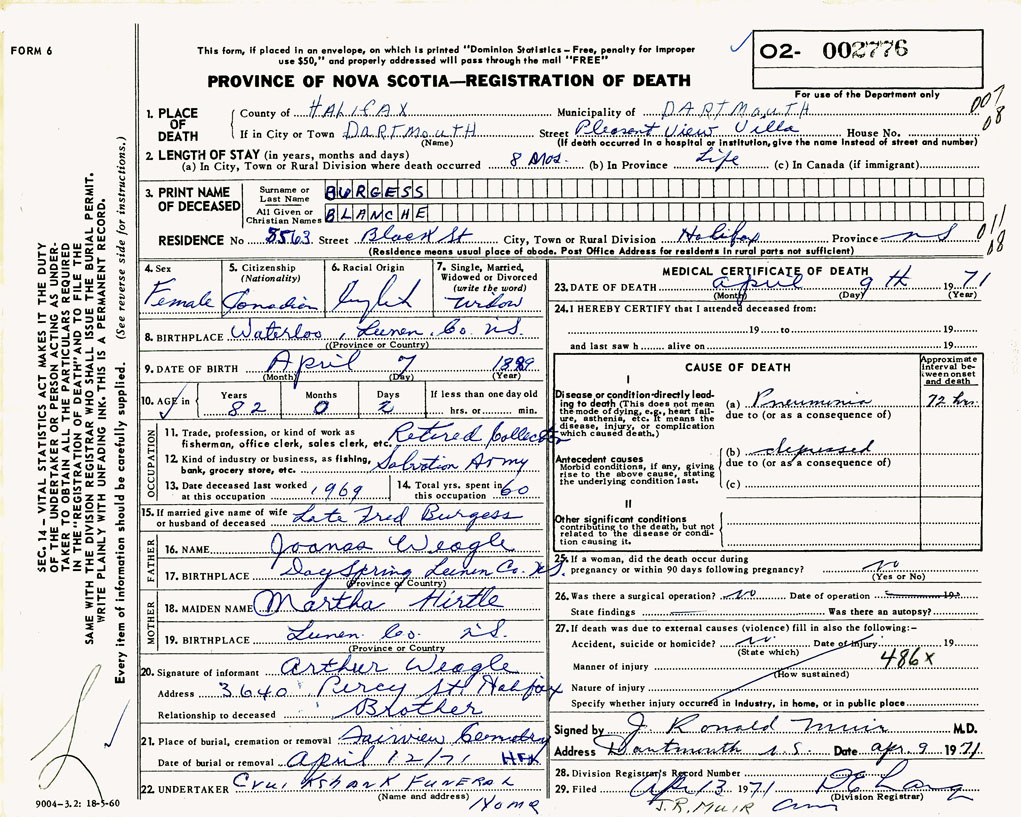 FORM 6
This form, if placed in an envelope, on which is printed "Dominion Statistics – Free, penalty for improper
use $50," and properly addressed will pass through the mail "FREE"
02- 002776
PROVINCE OF NOVA SCOTIA—REGISTRATION OF DEATH
For use of the Department only
1. PLACE OF DEATH
County of HALIFAX Municipality of DARTMOUTH 007
If in City or Town DARTMOUTH Street Pleasant View Villa House No. 08
(Name) (If death occurred in a hospital or institution, give the name instead of street and number)
2. LENGTH OF STAY (in years, months and days)
(a) In City, Town or Rural Division where death occurred 8 Mos. (b) In Province Life (c) In Canada (if immigrant)
3. PRINT NAME OF DECEASED
Surname or Last Name BURGESS
All Given or Christian Names BLANCHE
RESIDENCE No 5563 Street Black St City, Town or Rural Division Halifax Province NS 011
08
(Residence means usual place of abode. Post Office Address for residents in rural parts not sufficient)
4. Sex
Female
5. Citizenship
(Nationality)
Canadian
6. Racial Origin
English
7. Single, Married,
Widowed or Divorced
(write the word)
Widow
8. BIRTHPLACE Waterloo, Lunen. Co. N.S.
(Province or Country)
9. DATE OF BIRTH April 7 1889
(Month) (Day) (Year)
10. AGE in
Years Months Days If less than one day old
82 0 2 hrs. or min.
OCCUPATION
11. Trade, profession, or kind of work as
fisherman, office clerk, sales clerk, etc. Retired Collector
12. Kind of industry or business, as fishing,
bank, grocery store, etc. Salvation Army
13. Date deceased last worked
at this occupation 1969
14. Total yrs. spent in
this occupation 60
15. If married give name of wife
or husband of deceased Late Fred Burgess
FATHER
16. NAME Joanas Weagle
17. BIRTHPLACE DaySpring Lunen Co. N.S.
(Province or Country)
MOTHER
18. MAIDEN NAME Martha Hirtle
19. BIRTHPLACE Lunen. Co. N.S.
(Province or Country)
20. Signature of informant Arthur Weagle
Address 3640 Percy St Halifax
Relationship to deceased Brother
21. Place of burial, cremation or removal Fairview Cemetery
Date of burial or removal April 12/71 HFX
22. UNDERTAKER Cruikshank FUNERAL
(Name and address) Home
MEDICAL CERTIFICATE OF DEATH
23. DATE OF DEATH April 9th 1971
(Month) (Day) (Year)
24. I HEREBY CERTIFY that I attended deceased from:
19 to 19
and last saw h alive on 19
CAUSE OF DEATH
Approximate
interval be-
tween onset
and death
I
Disease or condition directly lead-
ing to death (This does not mean
the mode of dying, e.g., heart fail-
ure, asthenia, etc. It means the
disease, injury, or complication
which caused death.)
(a) Pneumonia 72 hrs.
due to (or as a consequence of)
Antecedent causes
Morbid conditions, if any, giving
rise to the above cause, stating
the underlying condition last.
(b) depressed
due to (or as a consequence of)
(c)
II
Other significant conditions
contributing to the death, but not
related to the disease or condi-
tion causing it.
25. If a woman, did the death occur during
pregnancy or within 90 days following pregnancy? no
(Yes or No)
26. Was there a surgical operation? no Date of operation 19
State findings Was there an autopsy?
27. If death was due to external causes (violence) fill in also the following:—
Accident, suicide or homicide? no Date of injury 19
(State which)
486x
Manner of injury
(How sustained)
Nature of injury
Specify whether injury occurred in Industry, in home, or in public place
Signed by J. Ronald Muir M.D.
Address Dartmouth N.S. Date Apr. 9 1971
28. Division Registrar's Record Number
29. Filed Apr 13 1971
(Division Registrar)
J.R. MUIR
SEC. 14 – VITAL STATISTICS ACT MAKES IT THE DUTY
OF THE UNDERTAKER OR PERSON ACTING AS UNDER-
TAKER TO OBTAIN ALL THE PARTICULARS REQUIRED
IN THE "REGISTRATION OF DEATH" AND TO FILE THE
SAME WITH THE DIVISION REGISTRAR WHO SHALL ISSUE THE BURIAL PERMIT.
WRITE PLAINLY WITH UNFADING INK. THIS IS A PERMANENT RECORD.
Every item of information should be carefully supplied. (See reverse side for instructions.)
9004-3.2: 18-5-60